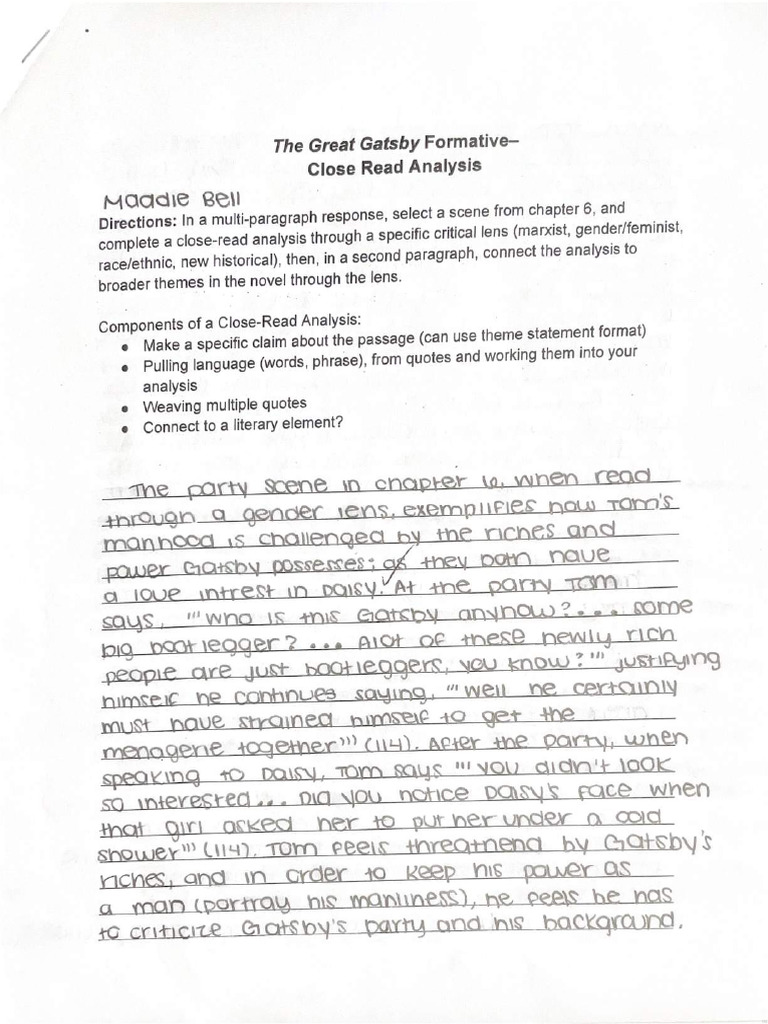 The Great Gatsby Formative–
Close Read Analysis
Maddie Bell
Directions: In a multi-paragraph response, select a scene from chapter 6, and
complete a close-read analysis through a specific critical lens (marxist, gender/feminist,
race/ethnic, new historical), then, in a second paragraph, connect the analysis to
broader themes in the novel through the lens.
Components of a Close-Read Analysis:
● Make a specific claim about the passage (can use theme statement format)
● Pulling language (words, phrase), from quotes and working them into your
analysis
● Weaving multiple quotes
● Connect to a literary element?
The party scene in chapter 6, when read
through a gender lens, exemplifies how Tom's
manhood is challenged by the riches and
power Gatsby possesses; as they both have
a love intrest in Daisy. At the party Tom
says, "'Who is this Gatsby anyhow?... some
big bootlegger?... Alot of these newly rich
people are just bootleggers, you know?'" justifying
himself he continues saying, "'Well he certainly
must have strained himself to get the
menagerie together'" (114). After the party, when
speaking to Daisy, Tom says "'You didn't look
so interested... Did you notice Daisy's face when
that girl asked her to put her under a cold
shower'" (114). Tom feels threatnend by Gatsby's
riches, and in order to keep his power as
a man (portray his manliness), he feels he has
to criticize Gatsby's party and his background.